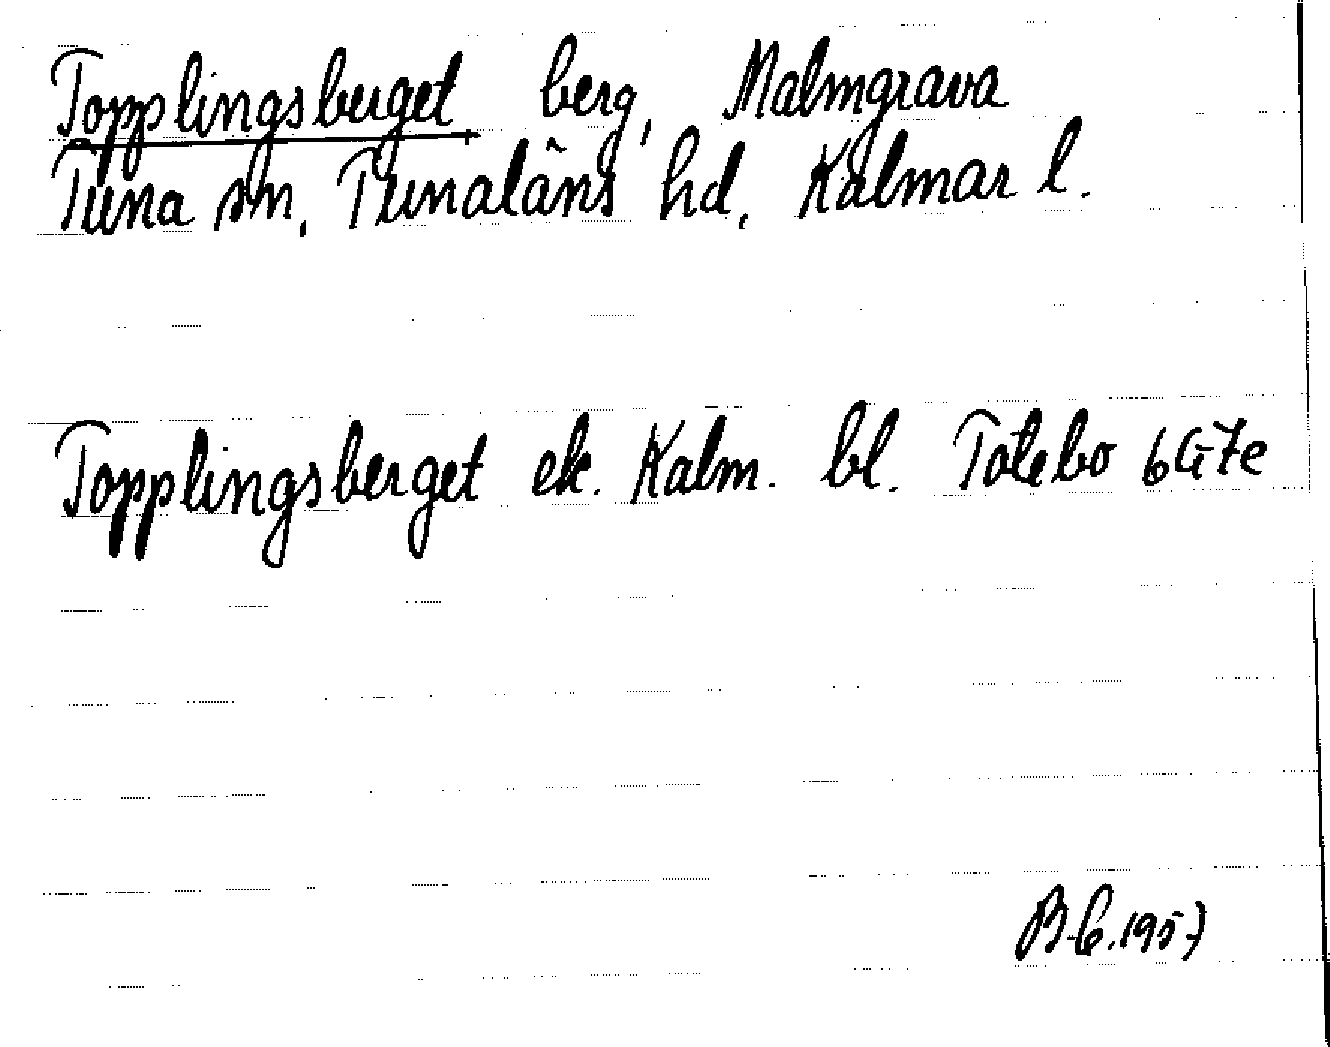 Topplingsberget berg, Malmgrava
Tuna sn, Tunaläns hd, Kalmar l.
Topplingsberget ek. Kalm. bl. Totebo 6G7e
B-C. 1957